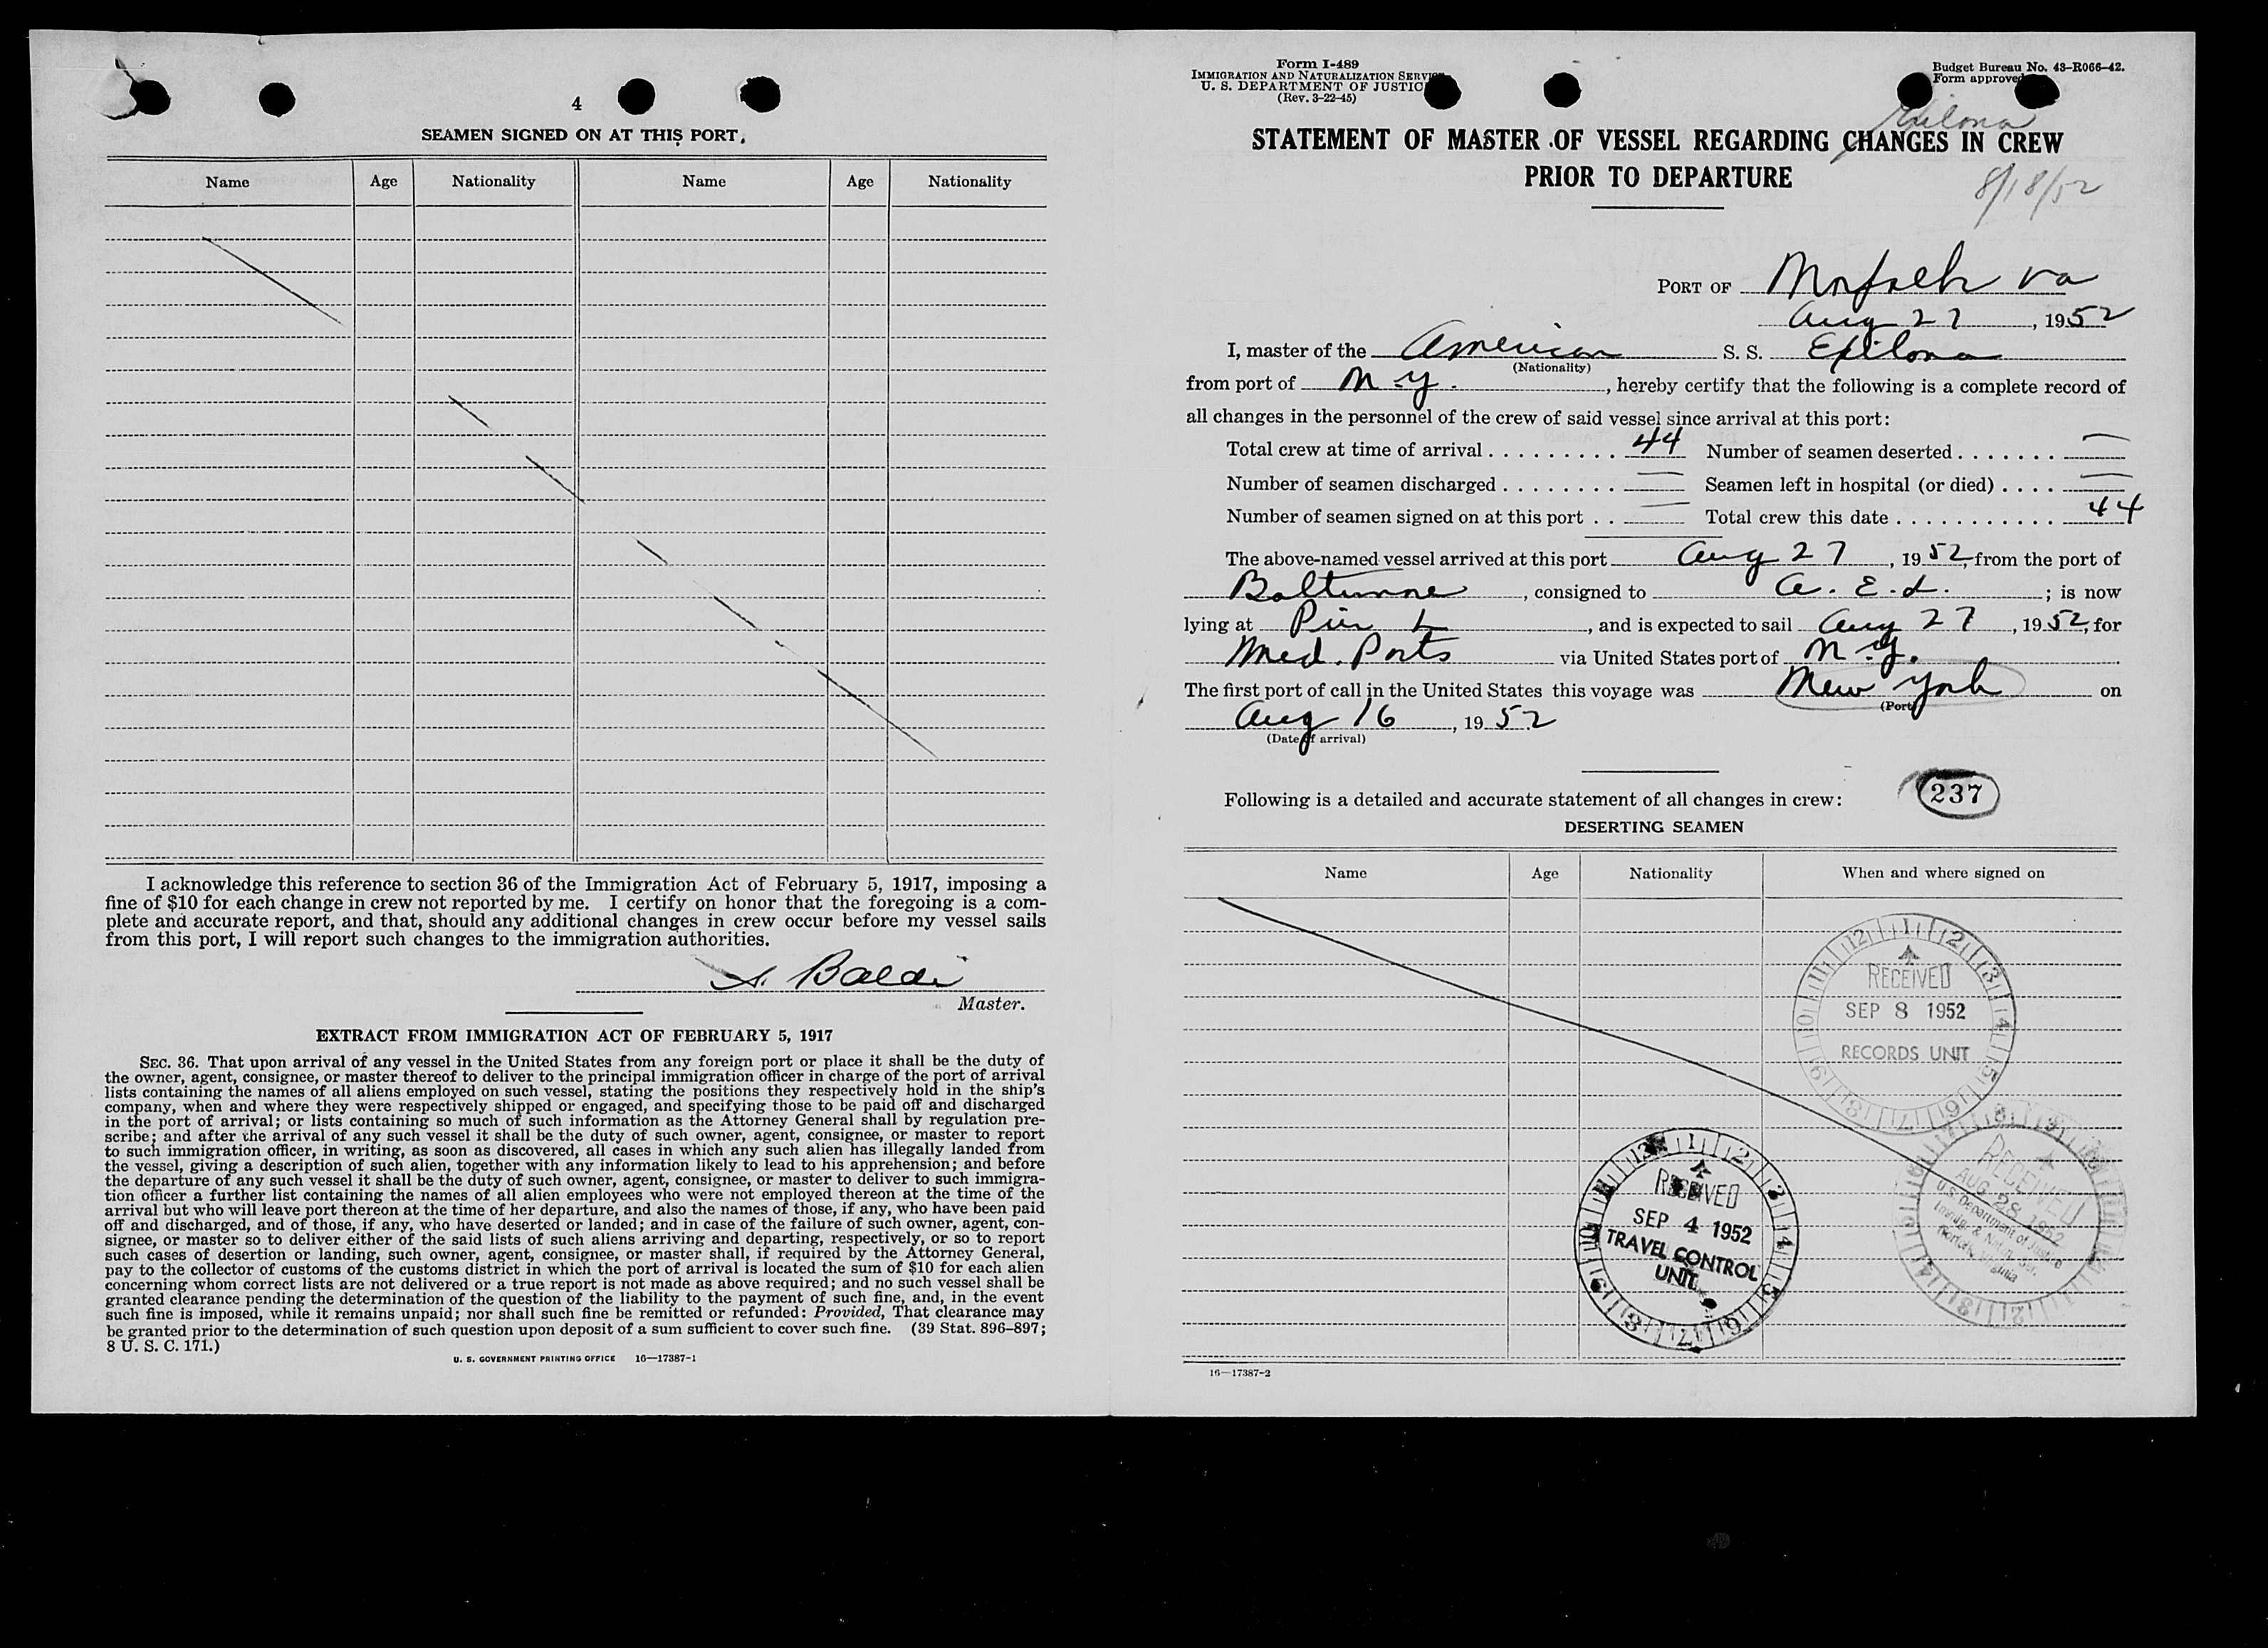 4
SEAMEN SIGNED ON AT THIS PORT.
Name Age Nationality Name Age Nationality
I acknowledge this reference to section 36 of the Immigration Act of February 5, 1917, imposing a
fine of $10 for each change in crew not reported by me. I certify on honor that the foregoing is a com-
plete and accurate report, and that, should any additional changes in crew occur before my vessel sails
from this port, I will report such changes to the immigration authorities.
A. Baldi
Master.
EXTRACT FROM IMMIGRATION ACT OF FEBRUARY 5, 1917
SEC. 36. That upon arrival of any vessel in the United States from any foreign port or place it shall be the duty of
the owner, agent, consignee, or master thereof to deliver to the principal immigration officer in charge of the port of arrival
lists containing the names of all aliens employed on such vessel, stating the positions they respectively hold in the ship's
company, when and where they were respectively shipped or engaged, and specifying those to be paid off and discharged
in the port of arrival; or lists containing so much of such information as the Attorney General shall by regulation pre-
scribe; and after the arrival of any such vessel it shall be the duty of such owner, agent, consignee, or master to report
to such immigration officer, in writing, as soon as discovered, all cases in which any such alien has illegally landed from
the vessel, giving a description of such alien, together with any information likely to lead to his apprehension; and before
the departure of any such vessel it shall be the duty of such owner, agent, consignee, or master to deliver to such immigra-
tion officer a further list containing the names of all alien employees who were not employed thereon at the time of the
arrival but who will leave port thereon at the time of her departure, and also the names of those, if any, who have been paid
off and discharged, and of those, if any, who have deserted or landed; and in case of the failure of such owner, agent, con-
signee, or master so to deliver either of the said lists of such aliens arriving and departing, respectively, or so to report
such cases of desertion or landing, such owner, agent, consignee, or master shall, if required by the Attorney General,
pay to the collector of customs of the customs district in which the port of arrival is located the sum of $10 for each alien
concerning whom correct lists are not delivered or a true report is not made as above required; and no such vessel shall be
granted clearance pending the determination of the question of the liability to the payment of such fine, and, in the event
such fine is imposed, while it remains unpaid; nor shall such fine be remitted or refunded: Provided, That clearance may
be granted prior to the determination of such question upon deposit of a sum sufficient to cover such fine. (39 Stat. 896-897;
8 U. S. C. 171.)
U. S. GOVERNMENT PRINTING OFFICE 16—17387-1
Form I-489
IMMIGRATION AND NATURALIZATION SERVICE
U. S. DEPARTMENT OF JUSTICE
(Rev. 3-22-45)
Budget Bureau No. 43-R066-42.
Form approved
STATEMENT OF MASTER OF VESSEL REGARDING CHANGES IN CREW
PRIOR TO DEPARTURE
8/18/52
PORT OF Norfolk Va
Aug 27, 1952
I, master of the American S. S. Exilona
(Nationality)
from port of N.Y., hereby certify that the following is a complete record of
all changes in the personnel of the crew of said vessel since arrival at this port:
Total crew at time of arrival 44 Number of seamen deserted —
Number of seamen discharged — Seamen left in hospital (or died) —
Number of seamen signed on at this port — Total crew this date 44
The above-named vessel arrived at this port Aug 27, 1952, from the port of
Baltimore, consigned to A. E. L.; is now
lying at Pier L, and is expected to sail Aug 27, 1952, for
Med. Ports via United States port of N.Y.
The first port of call in the United States this voyage was New York on
(Port)
Aug 16, 1952
(Date of arrival)
Following is a detailed and accurate statement of all changes in crew: 237
DESERTING SEAMEN
Name Age Nationality When and where signed on
RECEIVED
SEP 8 1952
RECORDS UNIT
RECEIVED
SEP 4 1952
TRAVEL CONTROL
UNIT
RECEIVED
AUG 28 1952
U.S. Department of Justice
Immigr. & Natur. Ser.
Norfolk, Virginia
16—17387-2